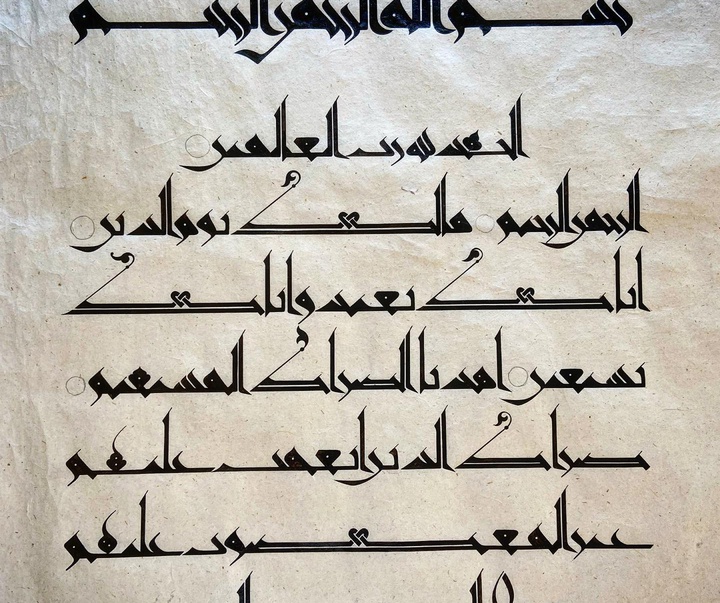 بسم الله الرحمن الرحيم
الحمد لله رب العالمين
الرحمن الرحيم مالك يوم الدين
اياك نعبد واياك
نستعين اهدنا الصراط المستقيم
صراط الذين انعمت عليهم
غير المغضوب عليهم